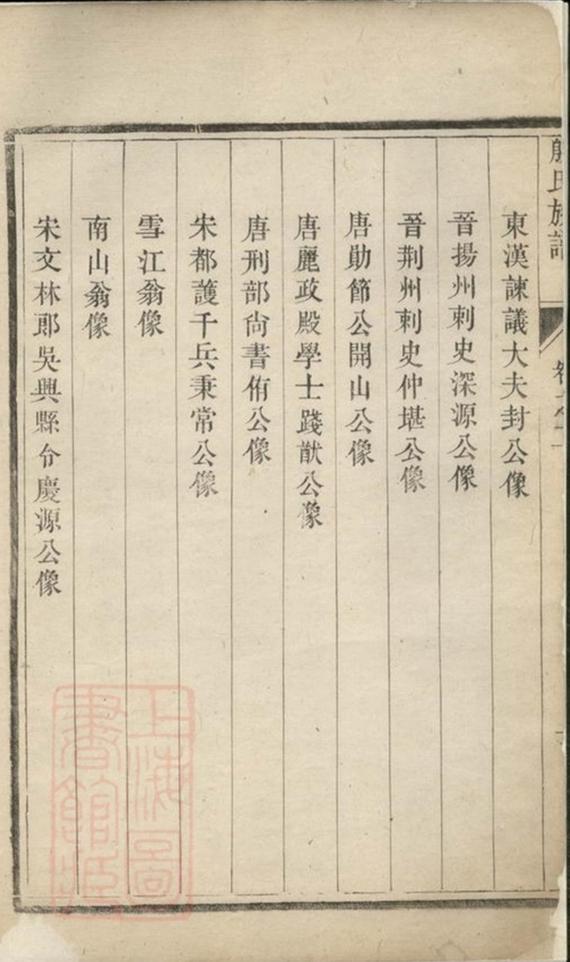 殷氏族譜
卷之一
東漢諫議大夫封公像
晉揚州刺史深源公像
晉荆州刺史仲堪公像
唐勛節公開山公像
唐麗政殿學士踐猷公像
唐刑部尙書侑公像
宋都護千兵秉常公像
雪江翁像
南山翁像
宋文林郎吳興縣令慶源公像
上海圖書館藏